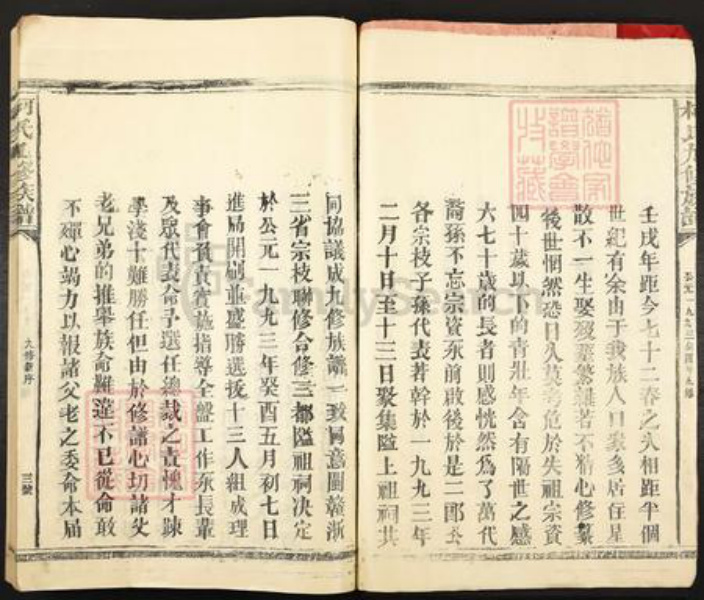 壬戌年距今七十二春之久相距半個
世紀有余由于我族人口衆多居住星
散不一生娶殁墓繁雜若不精心修纂
後世惘然恐日久莫考危於失祖宗資
四十歲以下的青壯年含有隔世之感
六七十歲的長者則感恍然爲了萬代
裔孫不忘宗資承前啟後於是二郎公
各宗枝子孫代表若幹於一九九三年
二月十日至十三日聚集隘上祖祠共
同協議成九修族譜一致同意閩贛浙
三省宗枝聯修合修三都隘祖祠決定
於公元一九九三年癸酉五月初七日
進局開刷並盛勝選後十三人組成理
事會負責實施指導全盤工作承長輩
及眾代表命予選任總裁之責愧才踈
學淺十難勝任但由於修譜心切諸父
老兄弟的推舉族命難違不已從命敢
不殫心竭力以報諸父老之委命本届
九修新序
三號
FamilySearch